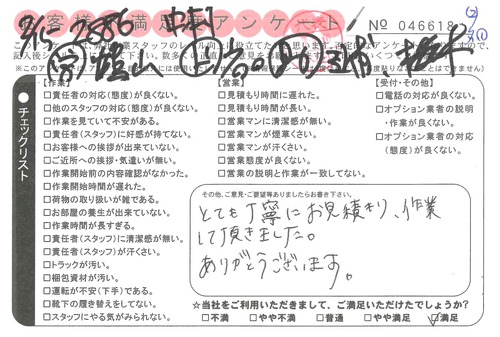 お客様満足度アンケート
No 046618
チェックリスト
【作業】
□責任者の対応(態度)が良くない。
□他のスタッフの対応(態度)が良くない。
□作業を見ていて不安がある。
□責任者(スタッフ)に好感が持てない。
□お客様への挨拶が出来ていない。
□ご近所への挨拶・気遣いが無い。
□作業開始前の内容確認がなかった。
□作業開始時間が遅れた。
□荷物の取り扱いが雑である。
□お部屋の養生が出来ていない。
□作業時間が長すぎる。
□責任者(スタッフ)に清潔感が無い。
□責任者(スタッフ)が汗くさい。
□トラックが汚い。
□梱包資材が汚い。
□運転が不安(下手)である。
□靴下の履き替えをしてない。
□スタッフにやる気がみられない。
【営業】
□見積もり時間に遅れた。
□見積もり時間が長い。
□営業マンに清潔感が無い。
□営業マンが煙草くさい。
□営業マンが汗くさい。
□営業態度が良くない。
□営業の説明と作業が一致してない。
【受付・その他】
□電話の対応が良くない。
□オプション業者の説明・作業が良くない。
□オプション業者の対応(態度)が良くない。
その他、ご意見・ご要望等ありましたらお書き下さい。
とても丁寧にお見積もり、作業
して頂きました。
ありがとうございます。
☆当社をご利用いただきまして、ご満足いただけたでしょうか?
□不満 □やや不満 □普通 □やや満足 □満足